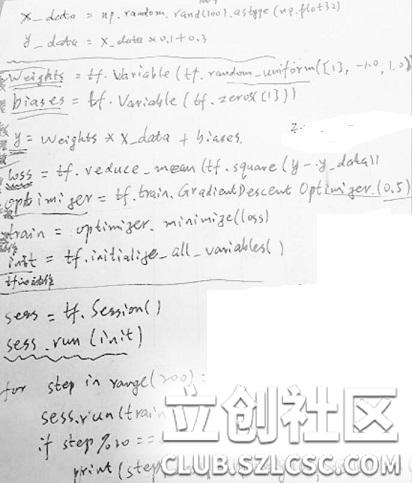 x_data = np.random.rand(100).astype(np.float32)
y_data = x_data × 0.1 + 0.3
Weights = tf.Variable(tf.random_uniform([1], -1.0, 1.0)
biases = tf.Variable(tf.zeros([1]))
y = Weights × x_data + biases.
loss = tf.reduce_mean(tf.square(y - y_data))
optimizer = tf.train.GradientDescentOptimizer(0.5)
train = optimizer.minimize(loss)
init = tf.initialize_all_variables()
sess = tf.Session()
sess.run(init)
for step in range(200):
sess.run(train
if step % 20 ==
print(step
立创社区
CLUB.SZLCSC.COM